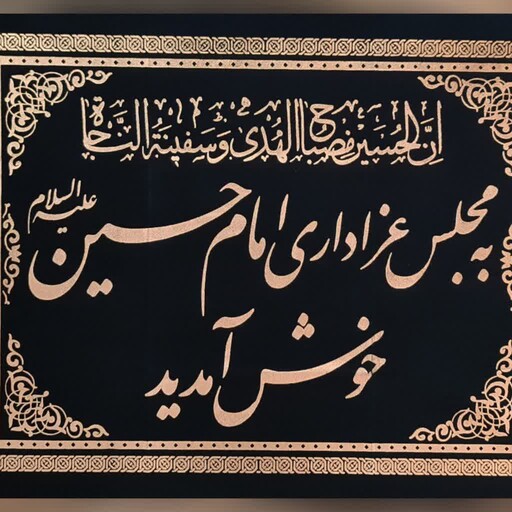 اِنَّ الحُسَین مِصباحُ الهُدی وَ سَفینَةُ النَّجاة
به مجلس عزاداری امام حسین علیه السلام
خوش آمدید